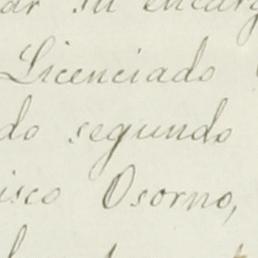 ar su encarg
Licenciado
do segundo
isco Osorno,